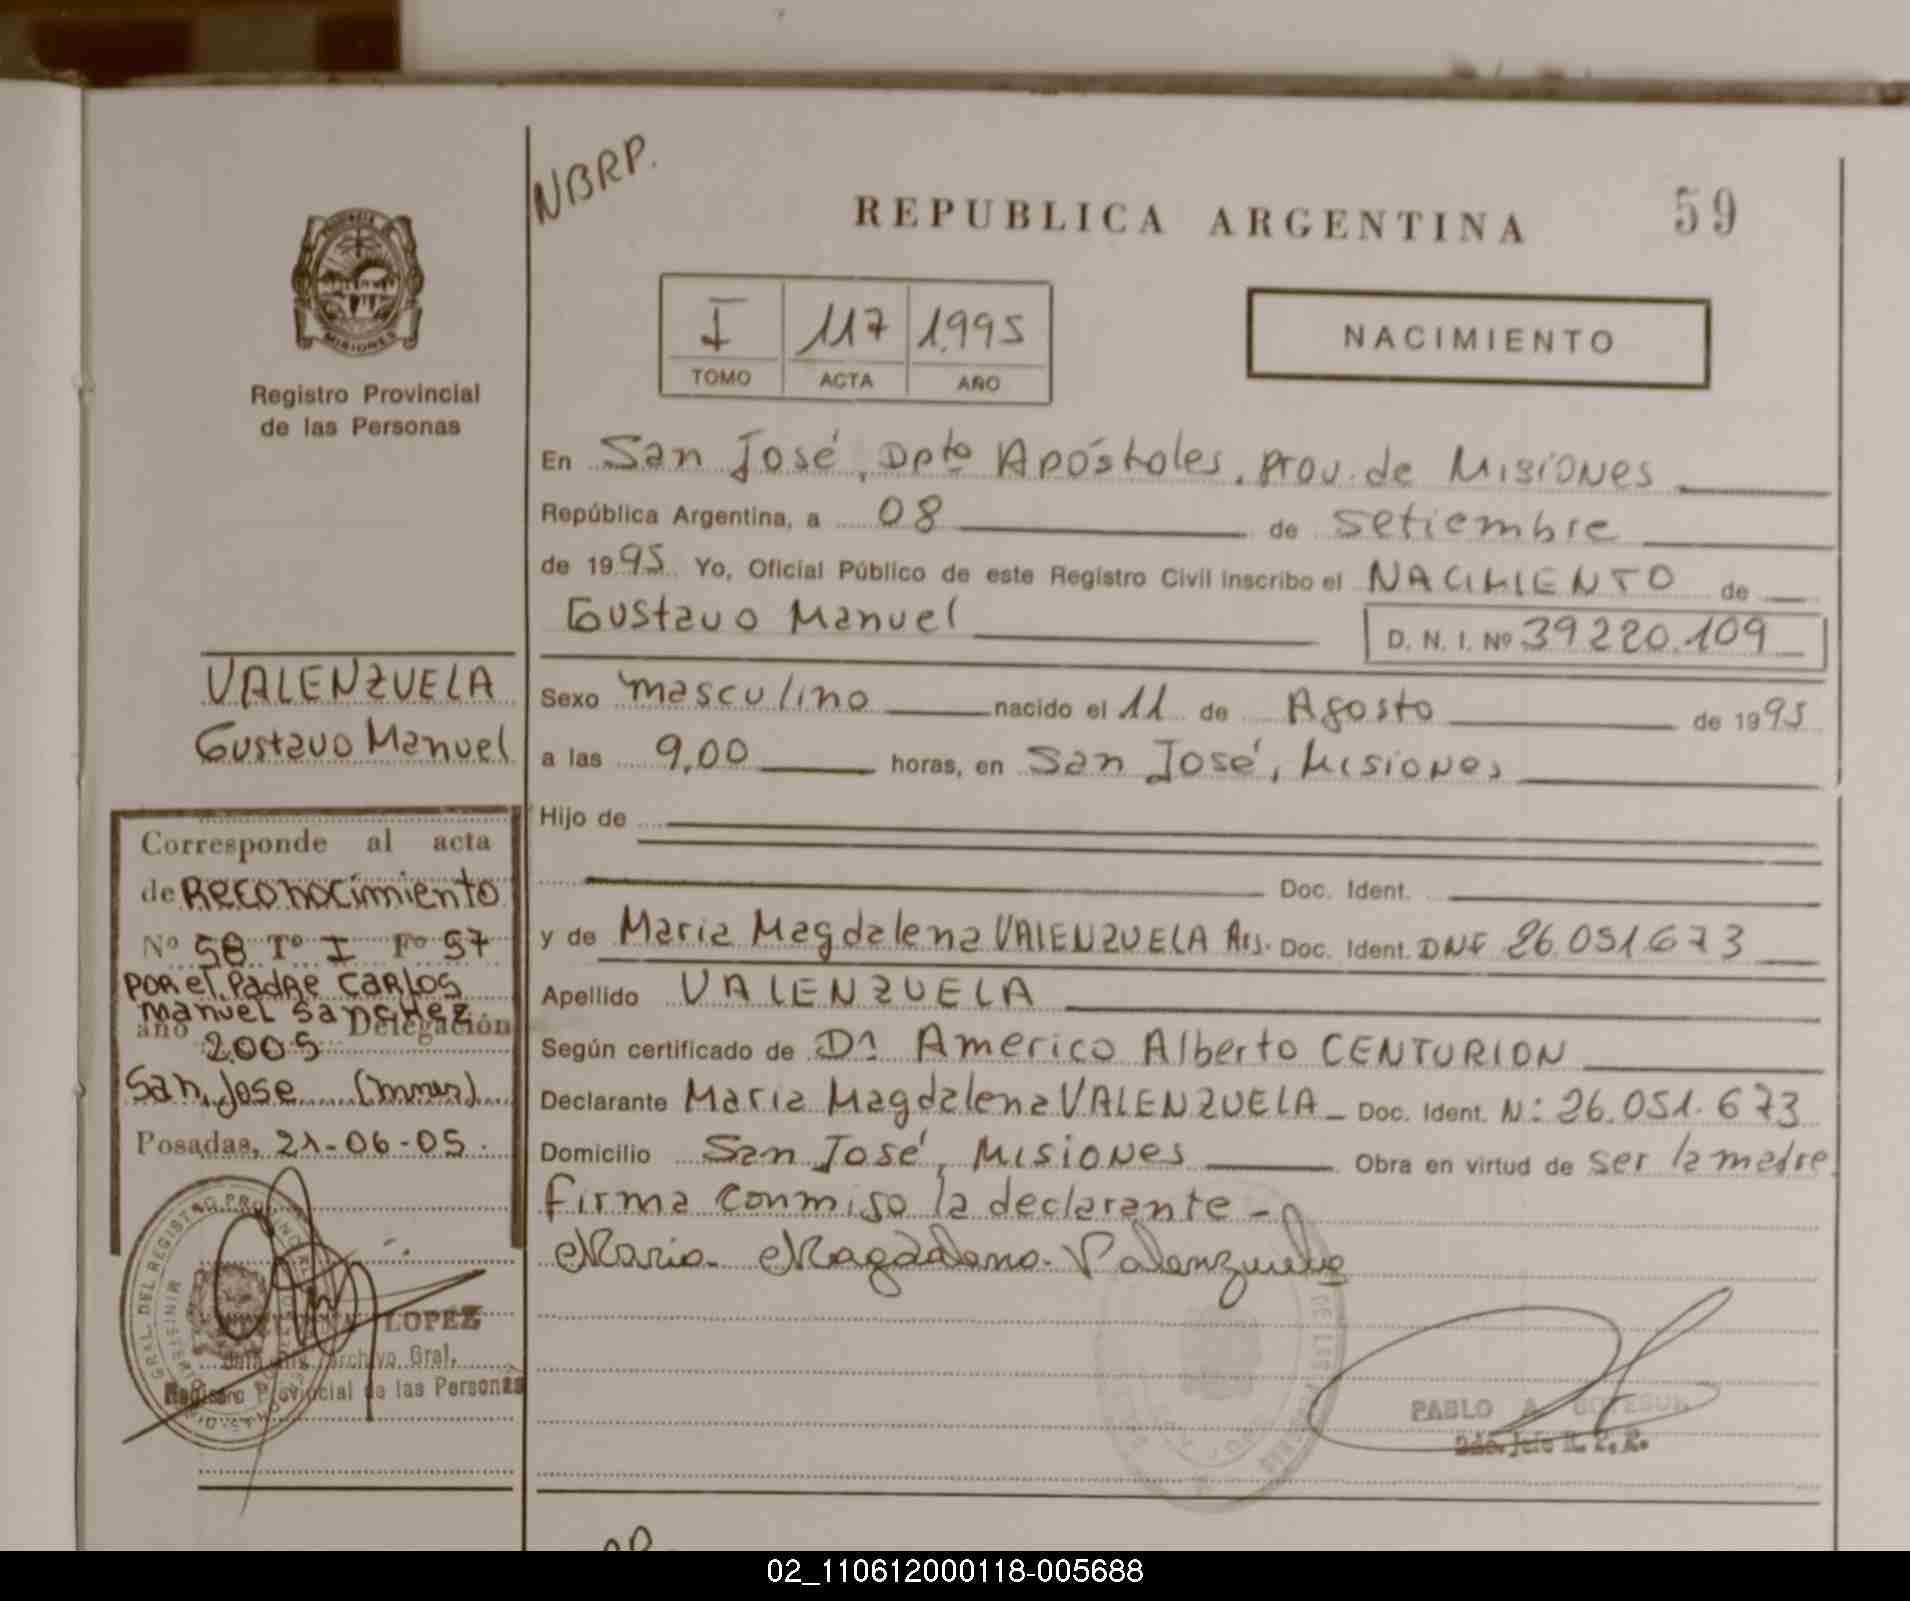 NBRP.
REPUBLICA ARGENTINA
59
MISIONES
Registro Provincial
de las Personas
I 117 1.995
TOMO ACTA AÑO
NACIMIENTO
En San José, Dpto Apóstoles, Prov. de Misiones
República Argentina, a 08 de Setiembre
de 1995 Yo, Oficial Público de este Registro Civil inscribo el NACIMIENTO de
Gustavo Manuel D. N. I. Nº 39220.109
VALENZUELA
Gustavo Manuel
Sexo masculino nacido el 11 de Agosto de 1995
a las 9,00 horas, en San José, Misiones
Hijo de
Doc. Ident.
y de Maria Magdalena VALENZUELA Doc. Ident. 26.051.673
Apellido VALENZUELA
Según certificado de Americo Alberto CENTURION
Declarante Maria Magdalena VALENZUELA Doc. Ident. N: 26.051.673
Domicilio San José, Misiones Obra en virtud de ser la madre
Firma conmigo la declarante
Maria Magdalena Valenzuela
Corresponde al acta
de Reconocimiento
Nº 58 Tº I Fº 57
POR el Padre CARLOS
Manuel Sanchez
año Delegación
2.005
San Jose
Posadas, 21-06-05.
LOPEZ
Archivo Gral.
Registro Provincial de las Personas
PABLO A.
02_110612000118-005688